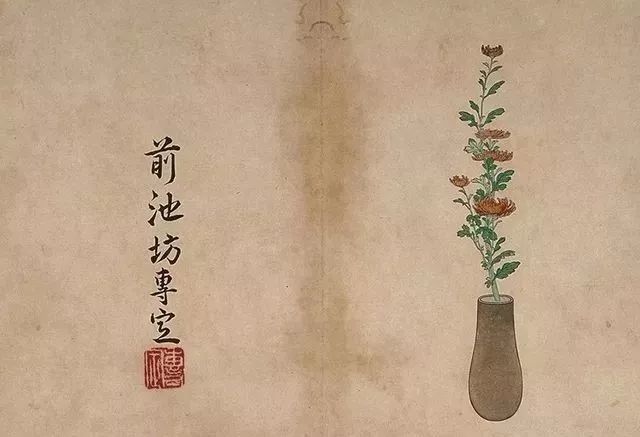 前池坊專定